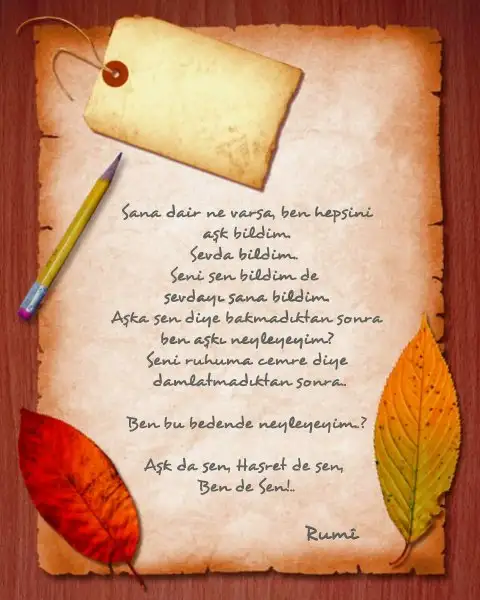 Sana dair ne varsa, ben hepsini
aşk bildim.
Sevda bildim..
Seni sen bildim de
sevdayı sana bildim.
Aşka sen diye bakmadıktan sonra
ben aşkı neyleyeyim?
Seni ruhuma cemre diye
damlatmadıktan sonra..
Ben bu bedende neyleyeyim..?
Aşk da sen, Hasret de sen,
Ben de Sen!..
Rumî